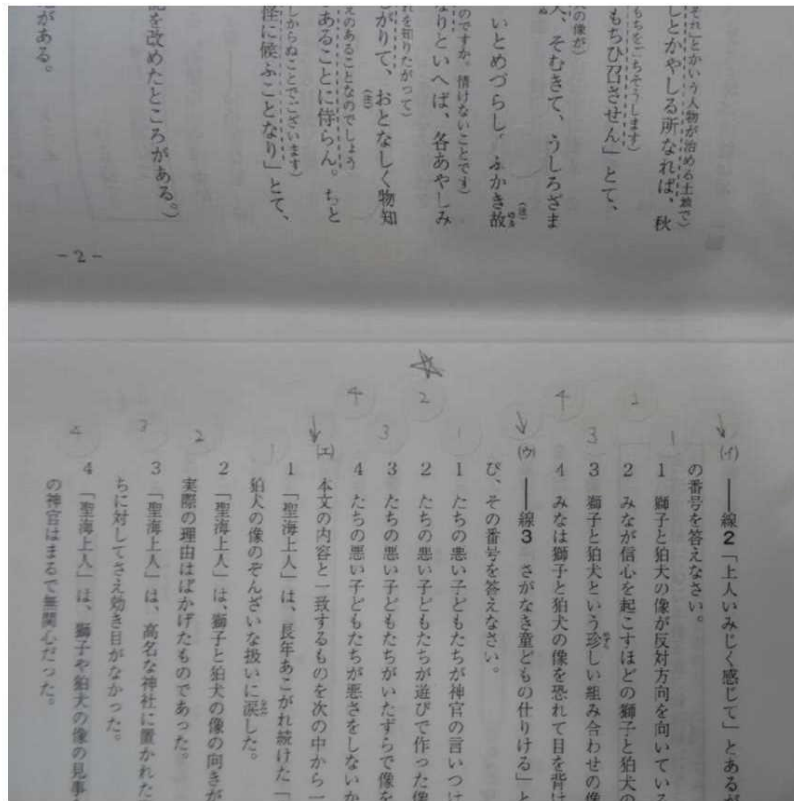 それ」とかいう人物が治める土地で)
しとかやしる所なれば、秋
もちをごちそうします)
もちひ召させん」とて、
の像が)
、そむきて、うしろざま
いとめづらし。ふかき故
ゆゑ
(注)
のですか。情けないことです)
なりといへば、各あやしみ
れを知りたがって)
がりて、おとなしく物知
(注)
えのあることなのでしょう
あることに侍らん。ちと
しからぬことでございます)
怪に候ふことなり」とて、
記を改めたところがある。)
がある。
-2-
(イ) ――線2「上人いみじく感じて」とあるが
の番号を答えなさい。
1 獅子と狛犬の像が反対方向を向いている
2 みなが信心を起こすほどの獅子と狛犬の
3 獅子と狛犬という珍しい組み合わせの像
4 みなは獅子と狛犬の像を恐れて目を背け
(ウ) ――線3「さがなき童どもの仕りける」と
び、その番号を答えなさい。
1 たちの悪い子どもたちが神官の言いつけ
2 たちの悪い子どもたちが遊びで作った像
3 たちの悪い子どもたちがいたずらで像を
4 たちの悪い子どもたちが悪さをしないか
(エ) 本文の内容と一致するものを次の中から一
1 「聖海上人」は、長年あこがれ続けた「
狛犬の像のぞんざいな扱いに涙した。
2 「聖海上人」は、獅子と狛犬の像の向きが
実際の理由はばかげたものであった。
3 「聖海上人」は、高名な神社に置かれた
ちに対してさえ効き目がなかった。
4 「聖海上人」は、獅子や狛犬の像の見事
の神官はまるで無関心だった。